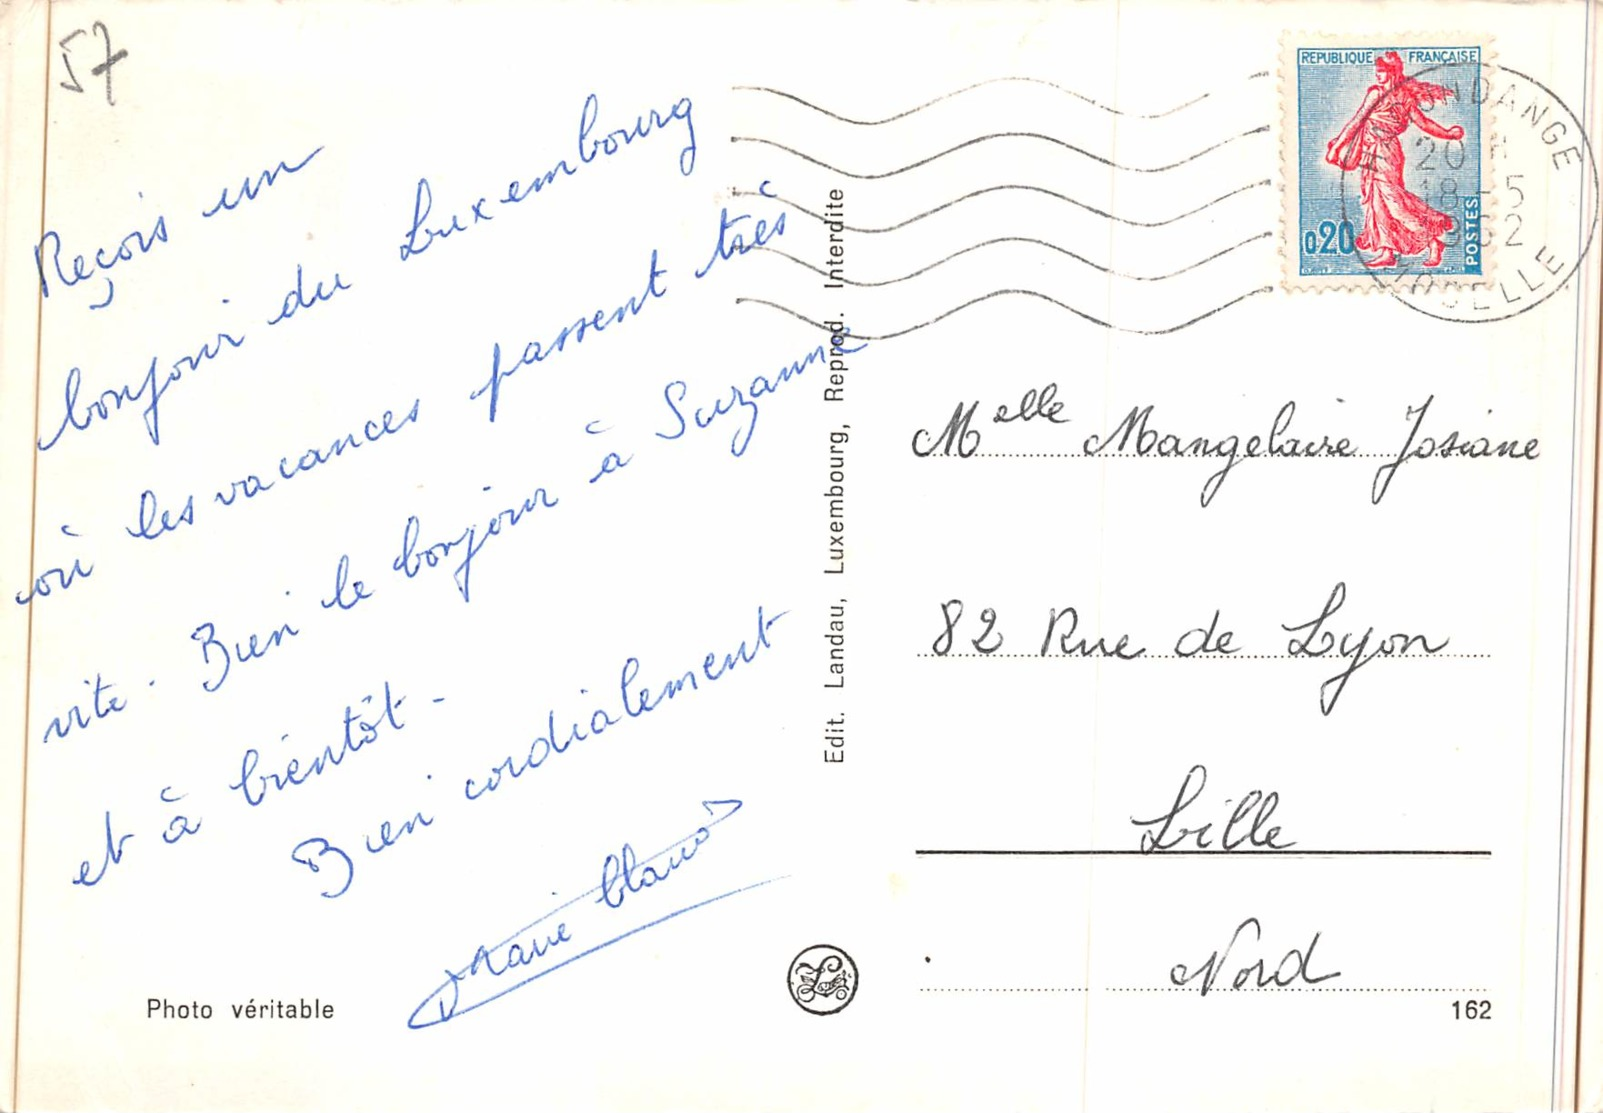 57
Reçois un
bonjour du Luxembourg
où les vacances passent très
vite. Bien le bonjour à Suzanne
et à bientôt -
Bien cordialement
Photo véritable
Edit. Landau, Luxembourg, Reprod. Interdite
REPUBLIQUE FRANÇAISE
0,20
POSTES
20 H
18-5
1962
MOSELLE
Melle Mangelaire Josiane
82 Rue de Lyon
Lille
Nord
162